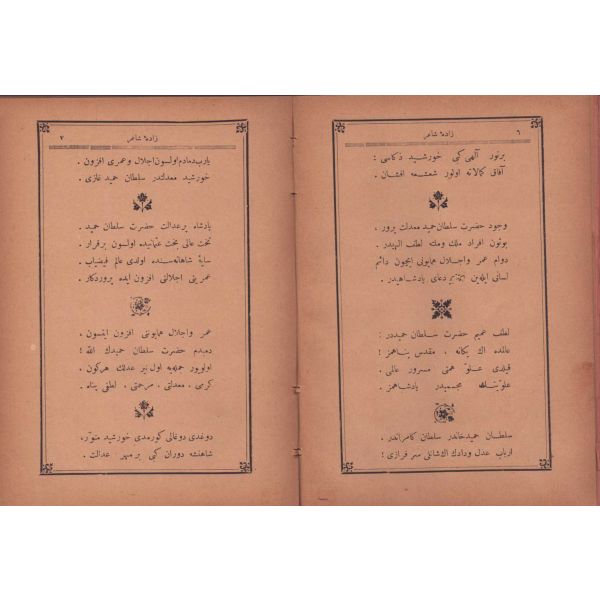 ٦ زادهٔ شاعر
برنور آلهی کبی خورشید ذکاسی :
آفاق کمالاته اولور شعشعه افشان .
وجود حضرت سلطان حمید معدلت پرور ،
بوتون افراد ملك وملته لطف الهیدر .
دوام عمر واجلال همایونی ایچون دائم
لسانی ایله‌ین دعای پادشاهیدر .
لطف عمیم حضرت سلطان حمیددر :
عالمده اك یکانه ، مقدس پناهمز !
قیلدی علو همتی مسرور عالمی :
پادشاهمز .
سلطان حمید خاندر سلطان کامراندر .
ارباب عدل ودادك اك شانلی سرفرازی !
زادهٔ شاعر ٧
یارب دمادم اولسون اجلال وعمری افزون .
خورشید معدلتدر سلطان حمید غازی .
پادشاه پرعدالت حضرت سلطان حمید .
تخت عالی بخت عثمانیده اولسون برقرار .
سایهٔ شاهانه‌سنده اولدی عالم فیضیاب .
عمرینی اجلالنی افزون ایده پروردکار .
عمر واجلال همایوننی افزون ایتسون .
دمبدم حضرت سلطان حمیدك الله !
اولویور جمله‌یه اول نیر عدلك هرکون .
کرمی ، معدلتی ، مرحمتی ، لطفی پناه .
دوغدی دوغالی کورمدی خورشید منور ،
شاهنشه دوران کبی بر مهر عدالت .